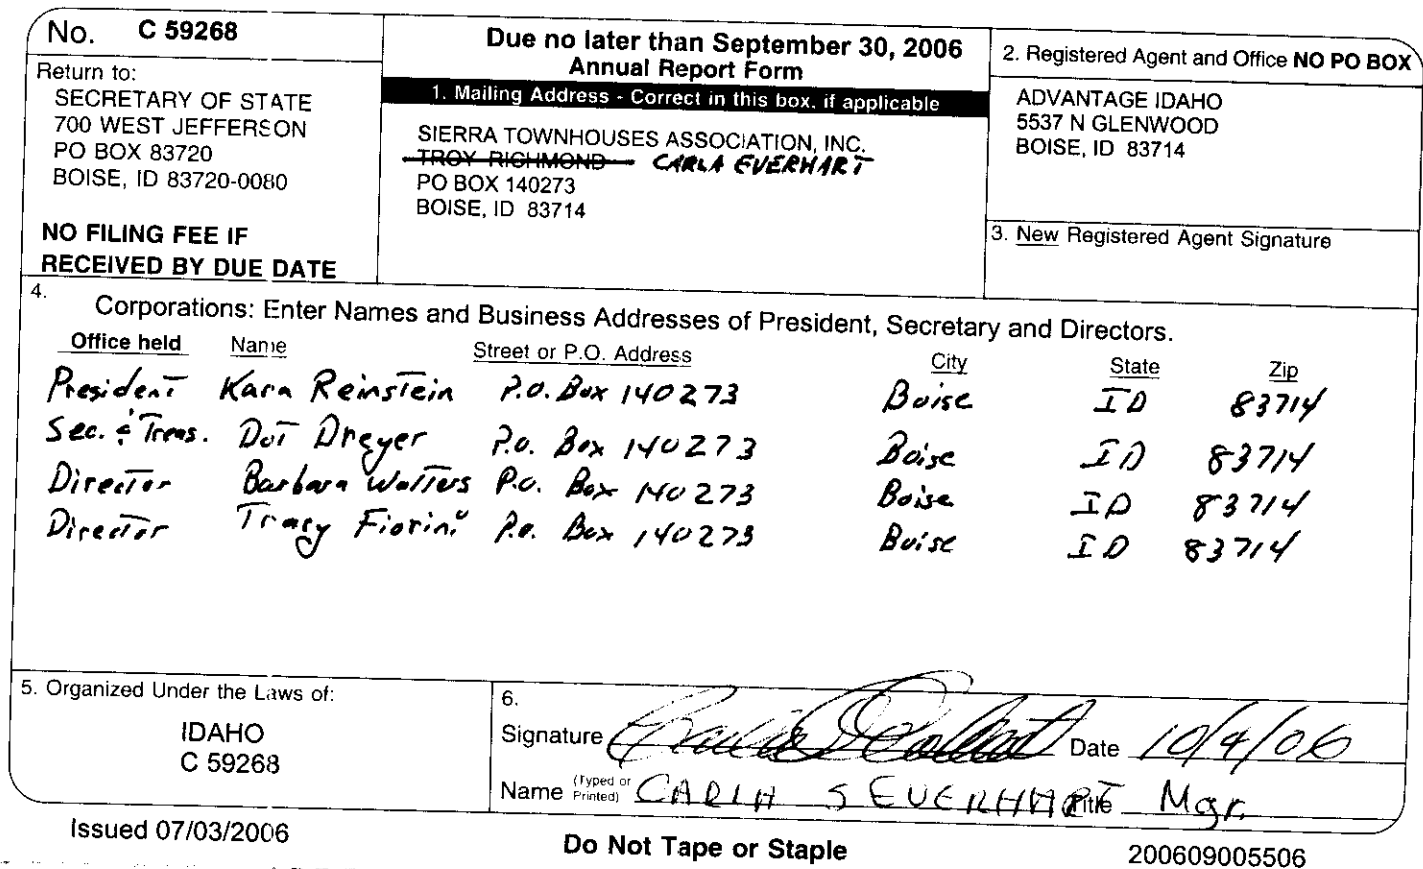 No. C 59268
Return to:
SECRETARY OF STATE
700 WEST JEFFERSON
PO BOX 83720
BOISE, ID 83720-0080
NO FILING FEE IF
RECEIVED BY DUE DATE
Due no later than September 30, 2006
Annual Report Form
1. Mailing Address - Correct in this box, if applicable
SIERRA TOWNHOUSES ASSOCIATION, INC.
TROY RICHMOND CARLA EVERHART
PO BOX 140273
BOISE, ID 83714
2. Registered Agent and Office NO PO BOX
ADVANTAGE IDAHO
5537 N GLENWOOD
BOISE, ID 83714
3. New Registered Agent Signature
4.
Corporations: Enter Names and Business Addresses of President, Secretary and Directors.
Office held Name Street or P.O. Address City State Zip
President Kara Reinstein P.O. Box 140273 Boise ID 83714
Sec. & Treas. Dot Dreyer P.O. Box 140273 Boise ID 83714
Director Barbara Watters P.O. Box 140273 Boise ID 83714
Director Tracy Fiorini P.O. Box 140273 Boise ID 83714
5. Organized Under the Laws of:
IDAHO
C 59268
6.
Signature Date 10/4/06
Name (Typed or Printed) CARLA S EVERHART Title Mgr.
Issued 07/03/2006
Do Not Tape or Staple
200609005506